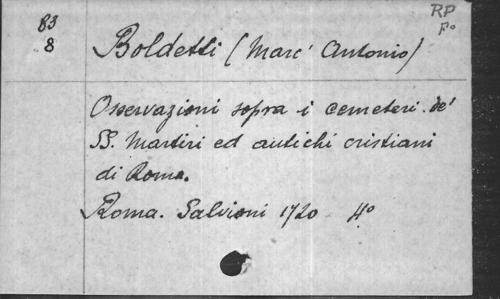 83
8
RP
Fo
Boldetti (Marc' Antonio)
Osservazioni sopra i cemeteri de'
SS. Martiri ed antichi cristiani
di Roma.
Roma. Salvioni 1720 4o